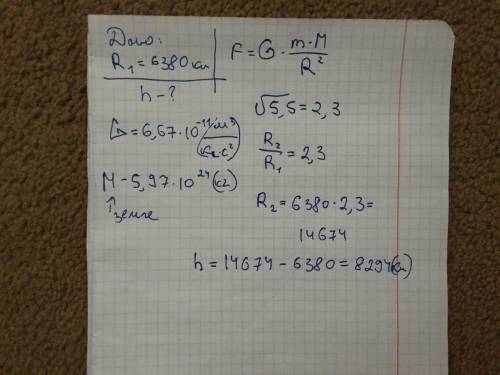 Дано:
R₁ = 6380 км
h - ?
G = 6,67 · 10⁻¹¹ (м³ / кг·с²)
M - 5,97 · 10²⁴ (кг)
↑ земле
F = G · m·M / R²
√5,5 = 2,3
R₂ / R₁ = 2,3
R₂ = 6380 · 2,3 =
14674
h = 14674 - 6380 = 8294 (км)